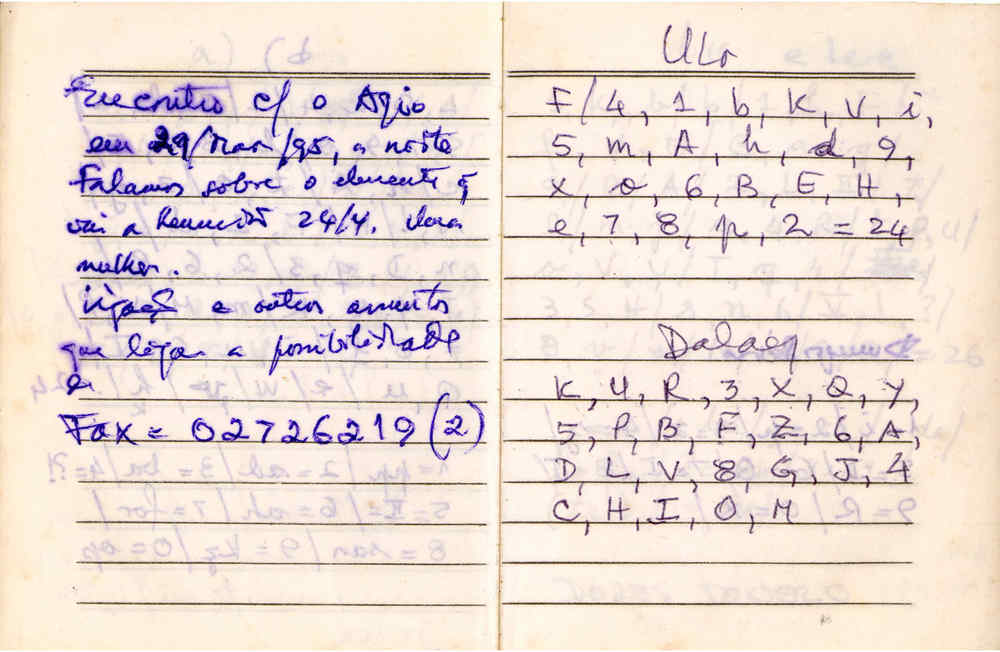 Encontro c/ o Agio
em 29/Mar/95, a noite
Falamos sobre o elemento q
vai a Reunião 24/4.
mulher.
ligação e outros assuntos
que liga a possibilidade
e.
Fax = 02726219 (2)
F/4, 1, b, K, V, i,
5, m, A, h, d, 9,
X, o, 6, B, E, H,
e, 7, 8, p, 2 = 24
K, 4, R, 3, X, Q, Y,
5, P, B, F, Z, 6, A,
D, L, V, 8, G, J, 4
C, H, I, O, M